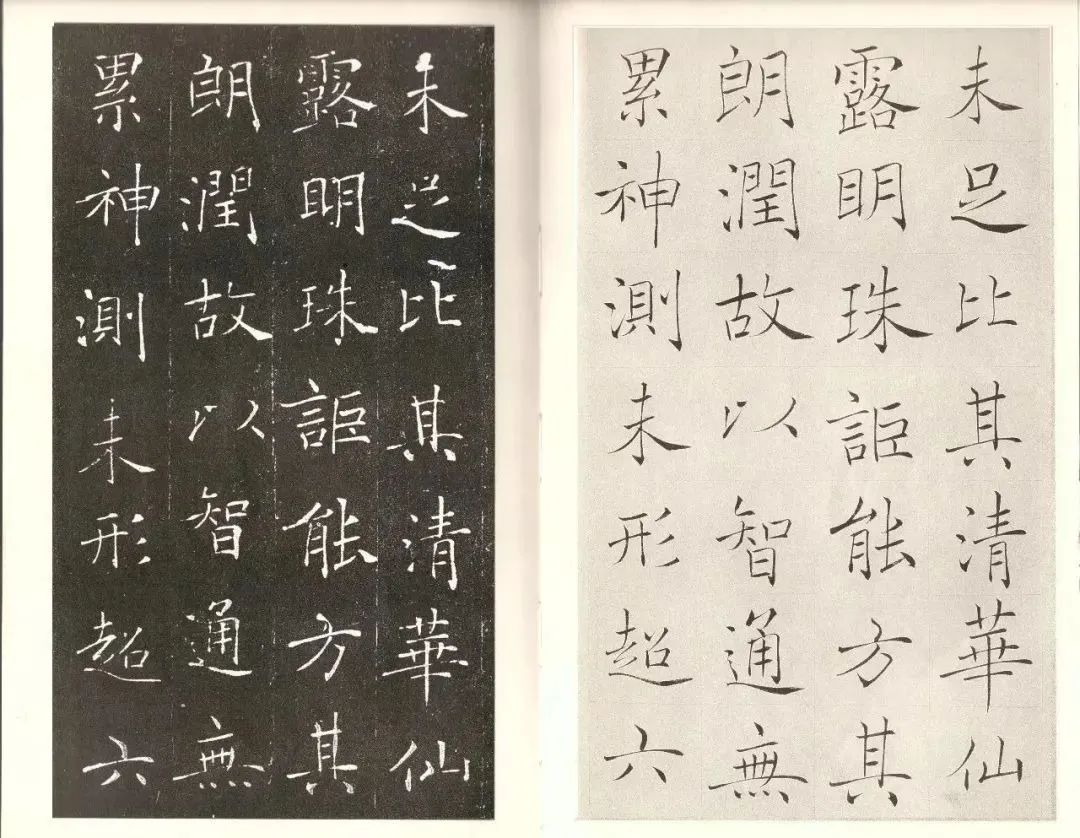 未足比其清華仙
露明珠詎能方其
朗潤故以智通無
累神測未形超六
未足比其清華仙
露明珠詎能方其
朗潤故以智通無
累神測未形超六